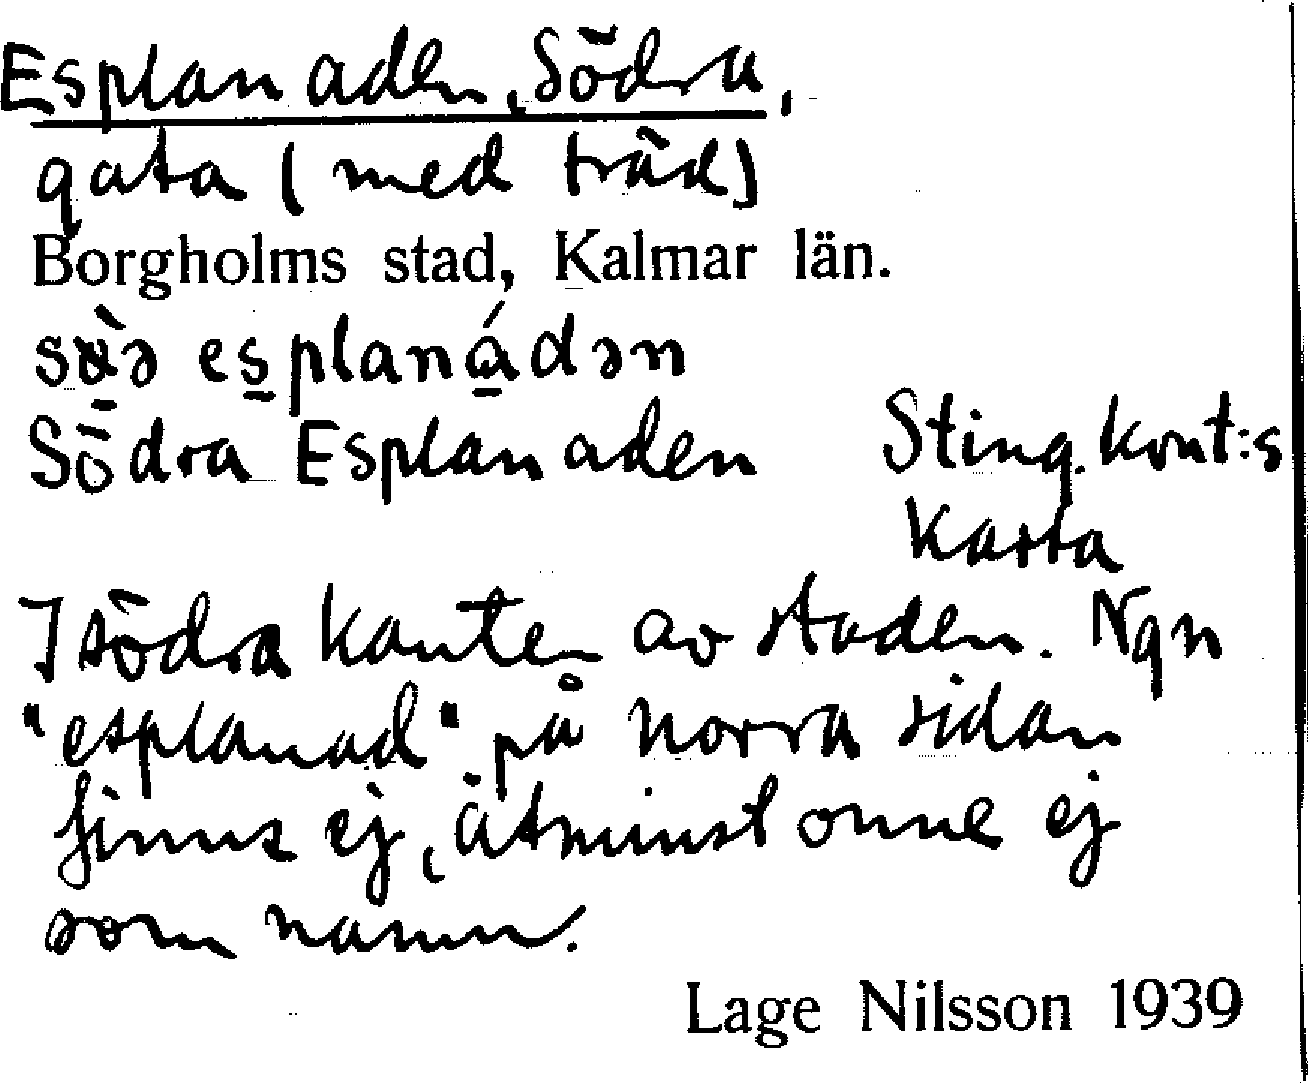 Esplanaden, Södra,
gata (med träd)
Borgholms stad, Kalmar län.
esplanádən
Södra Esplanaden Sting. kont:s
karta
I södra kanten av staden. Ngn
"esplanad" på norra sidan
finns ej, åtminstonne ej
som namn.
Lage Nilsson 1939